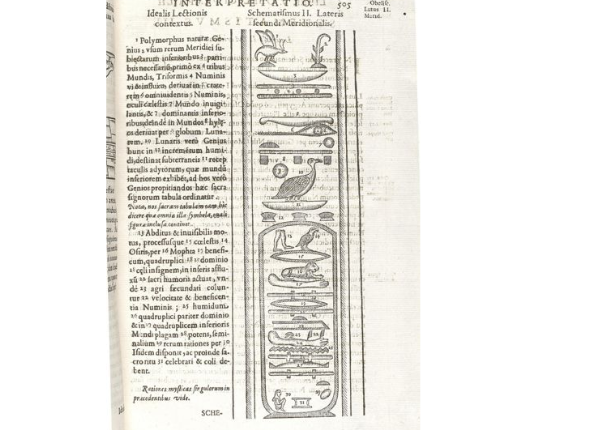 INTERPRETATIO. 505
Obelisc.
Latus II.
Merid.
Idealis Lectionis
contextus.
Schematismus II. Lateris
secundi Meridionalis.
1 Polymorphus naturæ Ge-
nius 2 vsum rerum Meridiei su-
biectarum inferioribus 3 partri-
bus necessarius, primò ex 4 tribus
Mundis, Triformis 4 Numinis
vi & influxu deriuat in 5 crate-
rem
oculi cælestis 7 Mundo inuigi-
lantis, & 7 dominantis inferio-
ribus,
deriuat per 9 globum Luna-
rem. 10 Lunaris verò Genius
hunc in 11 incremētum humi-
di, destinat subterraneis 12 recep
taculis adytorum; quæ mundo
inferiorem exhibēt, ad hos verò
Genios propitiandos hæc sacra
signorum tabula ordinatur.
Nota, nos sacram tabulam eam hic
dicere quæ omnia illa symbola, ouali
figura inclusa continet.
13 Abditus & inuisibilis mo-
tus, processusque 15 cœlestis 14
Osiris, per 16 Mophta 17 benefi-
cum, quadruplici 18 dominio
21 cœli insignem, in inferis astu-
xsi 22 sacri humoris actuat, vn-
dè 23 agri secundati colunt
tur 22 velocitate & beneficen-
tia Numinis; 25 humidum,
26 quadruplici pariter dominio
& in 27 quadruplicem inferioris
Mundi plagam 28 potens, semi-
nalium 29 rerum rationes per 30
Isidem disponit, ac proinde sa-
cro ritu 31 celebrati & coli de-
bent.
Rationes mysticas singulorum in
præcedentibus vide.
SCHE-